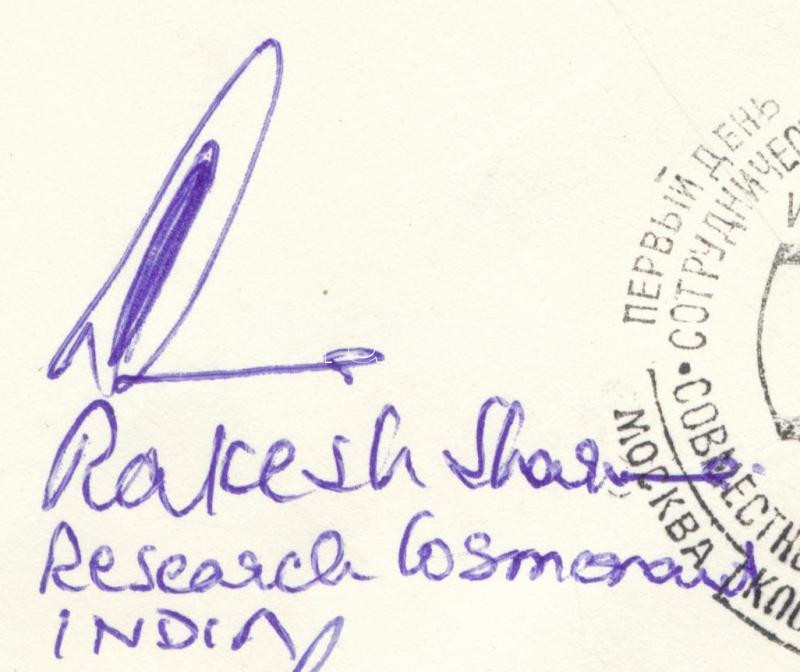 Rakesh Sharma
Research Cosmonaut
INDIA
ПЕРВЫЙ ДЕНЬ
СОТРУДНИЧЕС
• СОВМЕСТНЫ
МОСКВА